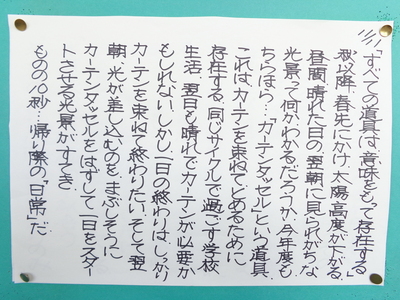 「すべての道具は、意味をもって存在する」
秋以降、春先にかけ、太陽高度が下がる。
昼間、晴れた日の翌朝に見られがちな
光景って何かわかるだろうか。今年度も
ちらほら…「カーテンタッセル」という道具。
これは、カーテンを束ねてとめるために
存在する。同じサイクルで過ごす学校
生活、翌日も晴れでカーテンが必要か
もしれない。しかし、一日の終わりは、しっかり
カーテンを束ねて終わりたい。そして、翌
朝、光が差し込むのを、まぶしそうに
カーテンタッセルをはずして、一日をスター
トさせる光景がすてき。
ものの10秒…帰り際の「日常」だ。